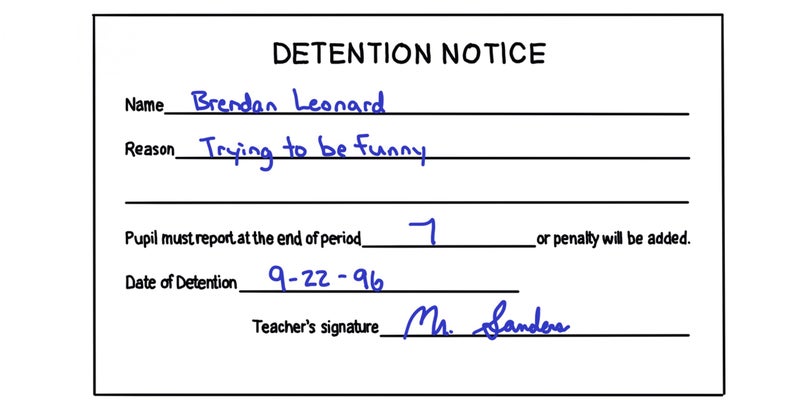 DETENTION NOTICE
Name Brendan Leonard
Reason Trying to be funny
Pupil must report at the end of period 7 or penalty will be added.
Date of Detention 9-22-96
Teacher's signature Mr. Sanders